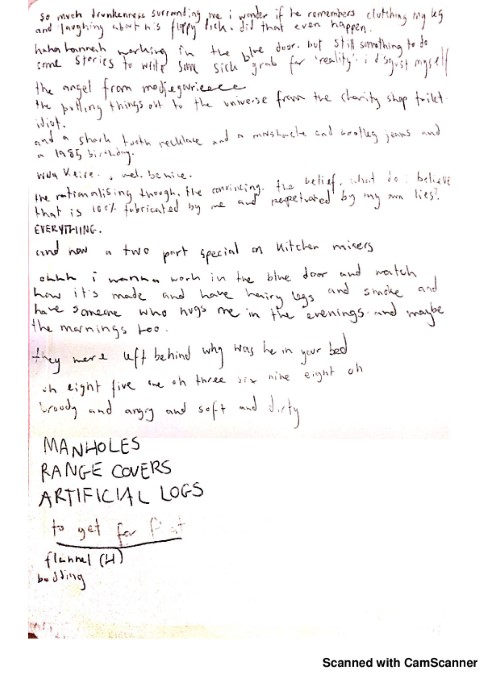 so much drunkenness surrounding me i wonder if he remembers clutching my leg
and laughing about his floppy dick. did that even happen.
haha hannah working in the blue door. but still something to do
some stories to write some sick grab for 'reality' i disgust myself
the angel from
the putting things out to the universe from the charity shop toilet
idiot.
and a shark tooth necklace and a moustache and bootleg jeans and
a 1985 birthday.
the rationalising through. the convincing. the belief. what do i believe
that is 100% fabricated by me and perpetuated by my own lies?
EVERYTHING.
and now a two part special on kitchen mixers
ohhh i wanna work in the blue door and watch
how it's made and have hairy legs and smoke and
have someone who hugs me in the evenings. and maybe
the mornings too.
they were left behind why was he in your bed
oh eight five one oh three six nine eight oh
broody and angry and soft and dirty
MANHOLES
RANGE COVERS
ARTIFICIAL LOGS
to get for
flannel (H)
bedding
Scanned with CamScanner